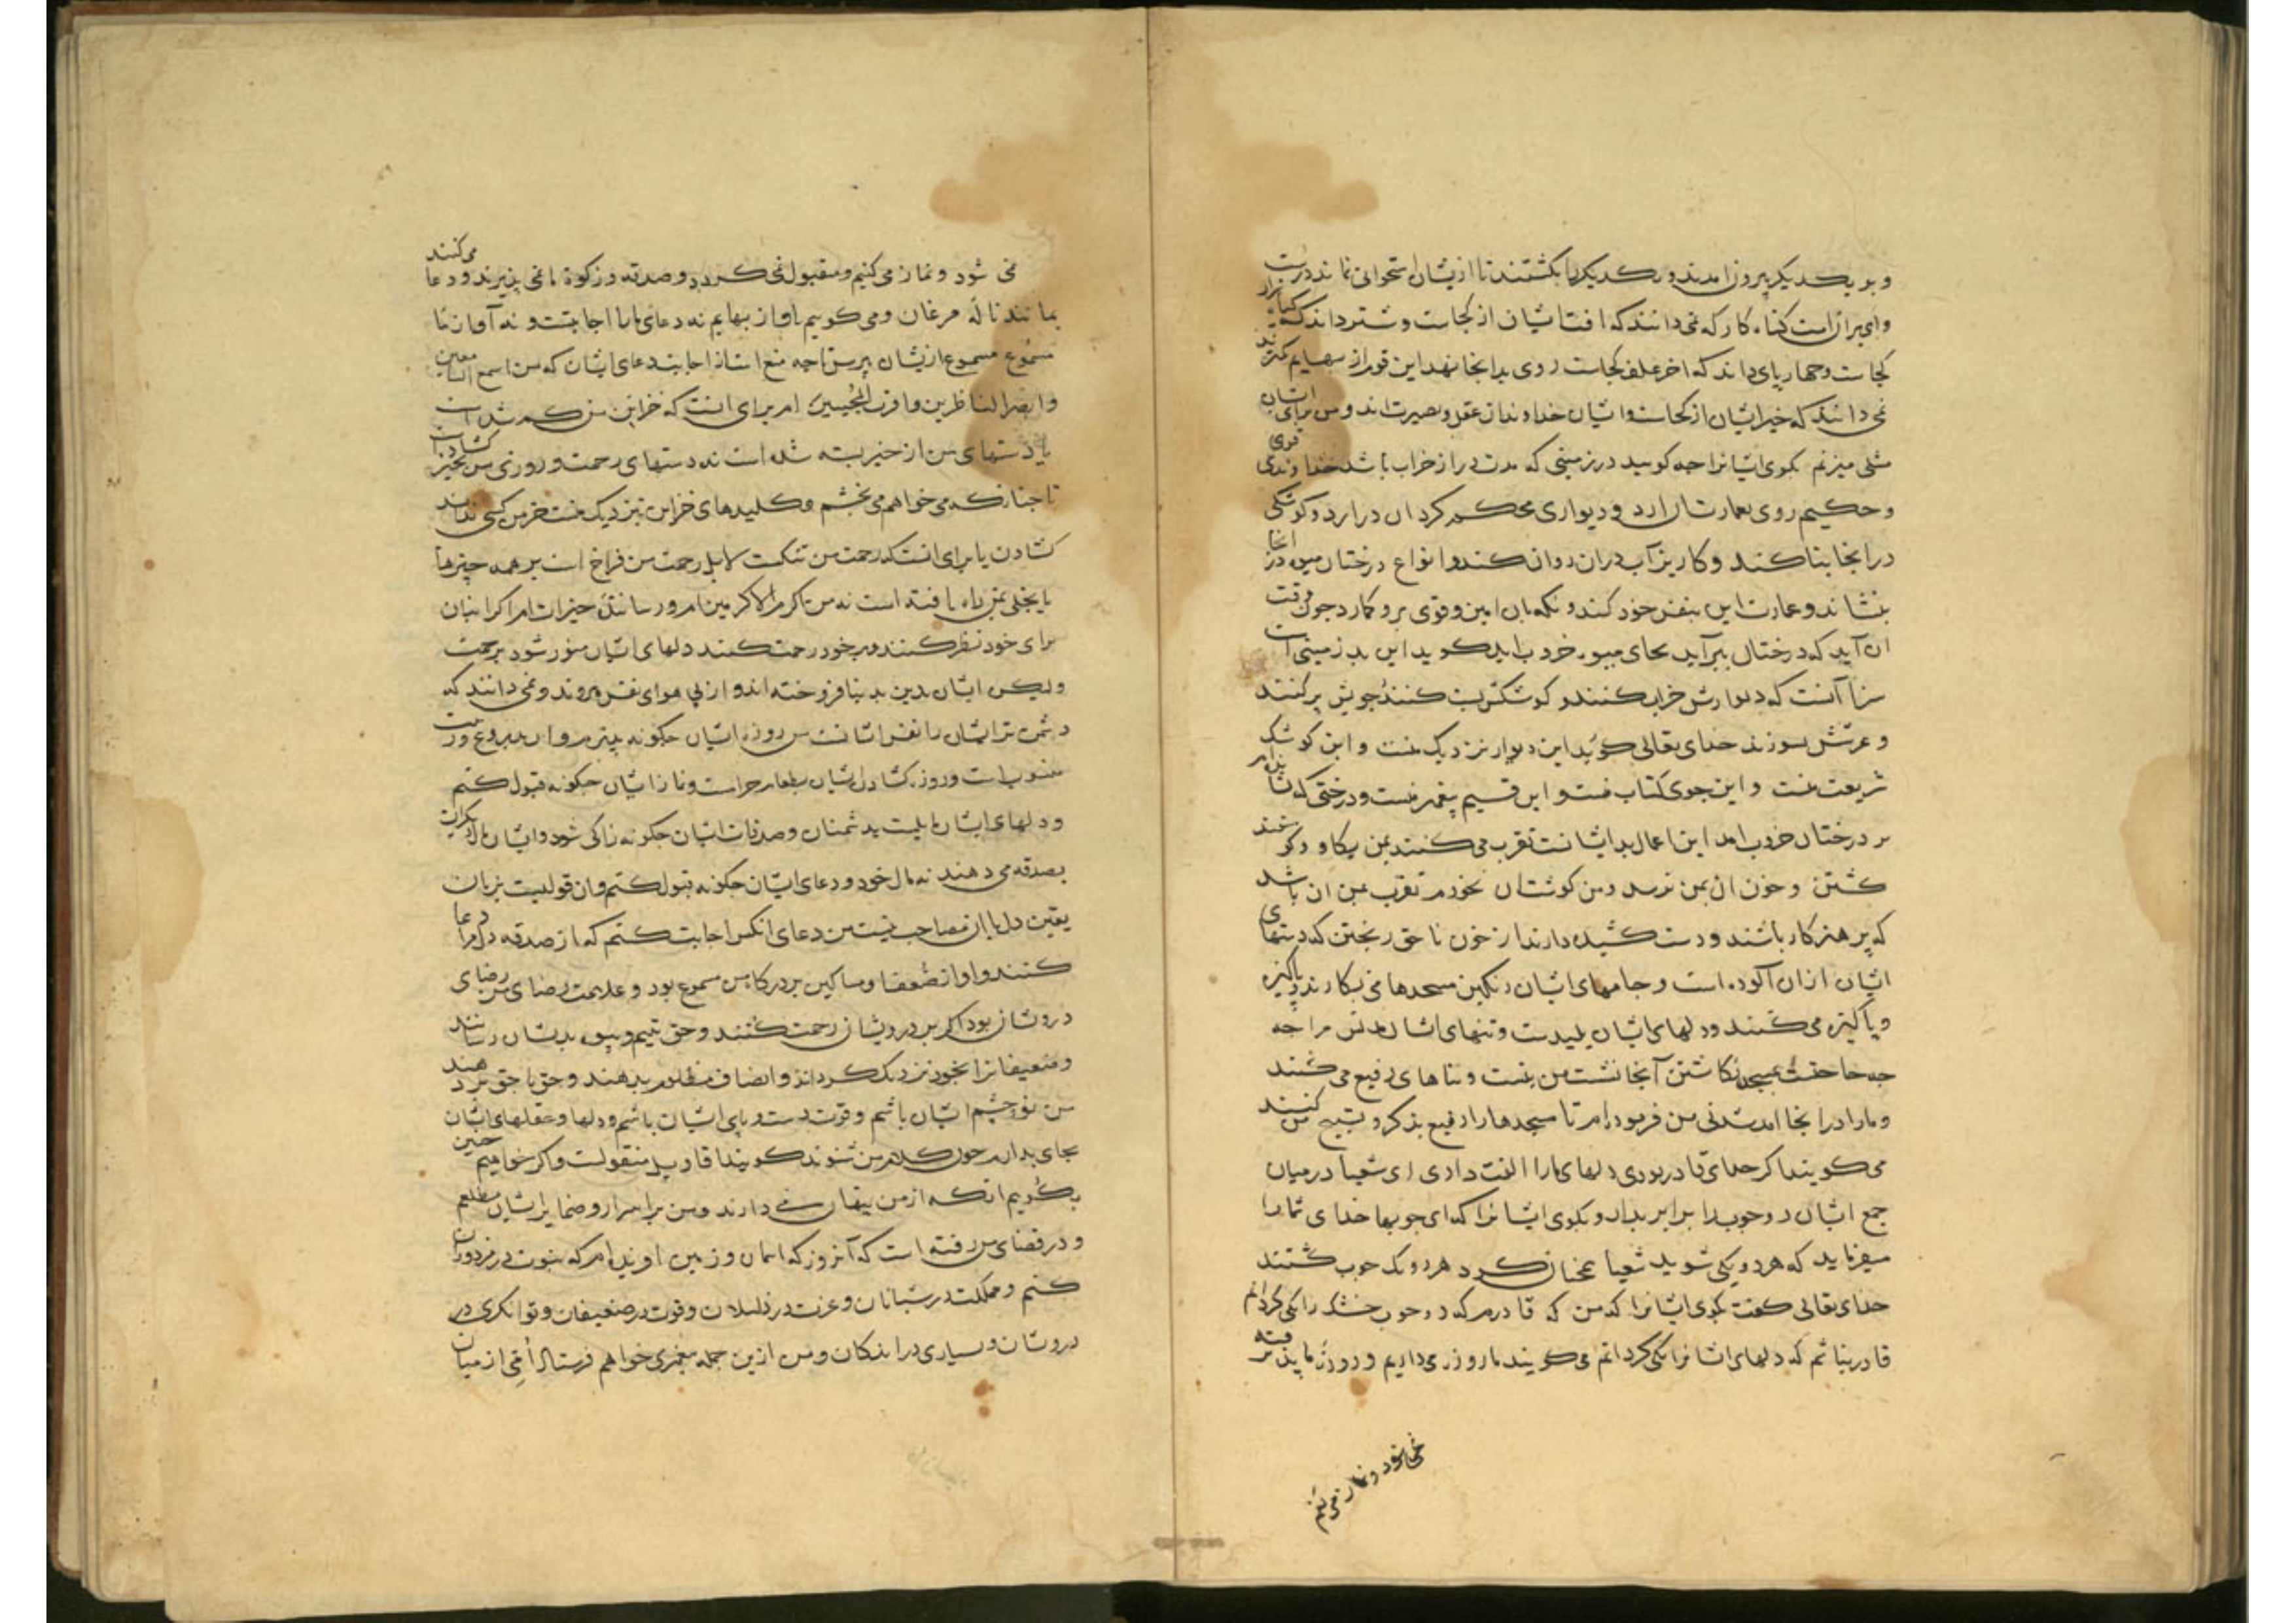 و بر یکدیگر بیرون آمدند و یکدیگر را بکشتند تا ازیشان استخوانی نماند درست
و ای بر این امت کناه کار که نمی دانند که افتشان از کجاست و شتر داند که
کجاست و جهارپای داند که اخر علف کجاست روی بدانجا نهد این قوم از بهایم کمترند
نمی دانند که خیر ایشان از کجاست و ایشان خداوندان عقل و بصیرت اند و من برای ایشان
مثلی میزنم بکوی ایشانرا جه کویید در زمینی که مدت دراز خراب باشد خداوندی قوی
و حکیم روی بعمارت ان ارد و دیواری محکم کرد ان درارد و کوشکی
در انجا بنا کند و کاریز آب دران روان کند و انواع درختان میوه در انجا
بنشاند و عمارت این بنفس خود کند و نکهبان امین و قوی برو کمارد جون وقت
ان آید که درختان ببر آید بجای میوه خروب اید کوید این بد زمینی است
سزا آنست که دیوارش خراب کنند و کوشکش پست کنند جویش پر کنند
و عرشش بسوزند خدای تعالی کوید این دیوار نزدیک منست و این کوشک
شریعت منست و این جوی کتاب منست و این قیم پیغمبر منست و درختی که نشاندم
بر درختان خروب امد این اعمال بد ایشانست تقرب می کنند بمن بکاو و کوسفند
کشتن و خون ان بمن نرسد و من کوشت ان نخورم تقرب بمن ان باشد
که پرهیزکار باشند و دست کشیده دارند از خون ناحق ریختن که دستهای
ایشان ازان آلوده است و جامهای ایشان رنکین مسجدها می نکارند و پاکیزه
و پاکیزه می کنند و دلهای ایشان پلیدست و تنهای ایشان مدنس مرا جه
جه حاجتست بمسجد نکاشتن آنجا نشست من نیست و بناهای رفیع می کنند
و مارا درانجا امد شدنی من فرموده ام تا مسجدها را رفیع بذکر و تسبیح من کنند
می کویند اکر خدای قادر بودی دلهای مارا الفت دادی ای شعیا در میان
جمع ایشان دو جوب را برابر بدار و بکوی ایشانرا که ای جوبها خدای شما را
میفرماید که هر دو یکی شوید شعیا همجنان کرد هر دو یک جوب کشتند
خدای تعالی کفت بکوی ایشانرا که من که قادرم که دو جوب خشک را یکی کردانم
قادر نباشم که دلهای ایشانرا یکی کردانم می کویند ما روزه می داریم و روزه ما پذیرفته
نمی شود و نماز می کنیم
نمی شود و نماز می کنیم و مقبول نمی کردد و صدقه و زکوة ما نمی پذیرند و دعا می کنند
بمانند ناله مرغان و می کوییم باواز بهایم نه دعای مارا اجابتست و نه آواز ما
مسموع مسموع ازیشان بپرس تا جه منع است از اجابت دعای ایشان که من اسمع السامعین
و ابصر الناظرین و اقرب المجیبین ام برای انست که خزاین من کم شده است
یا دستهای من از خیر بسته شده است نه دستهای رحمت و روزی من بخیر کشاده است
تا جنانکه می خواهم می بخشم و کلیدهای خزاین نزدیک منست جز من کسی نداند
کشادن یا برای انست که رحمت من تنکست لا بل رحمت من فراخ است بر همه جیزها
یا بخلی بمن راه یافته است نه من اکرم الاکرمین ام و رسانندۀ خیرات ام اکر اینان
برای خود نظر کنند و بر خود رحمت کنند دلهای ایشان منور شود برحمت
ولیکن ایشان دین بدنیا فروخته اند و از پی هوای نفس میروند و نمی دانند که
دشمن تر ایشان را نفس ایشانست پس روزۀ ایشان جکونه پذیرم و ان بدروغ و زور
منسوب است و روزه کشادن ایشان بطعام حرامست و نماز ایشان جکونه قبول کنم
و دلهای ایشان مایلست بدشمنان و صدقات ایشان جکونه زاکی شود و ایشان مال دیکران
بصدقه می دهند نه مال خود و دعای ایشان جکونه قبول کنم و ان قولیست بزبان
یقین دل با ان مصاحب نیست من دعای انکس اجابت کنم که از صدقه دل مرا دعا
کنند و اواز ضعفا و مساکین بر درکاه من مسموع بود و علامت رضای من رضای
درویشان بود اکر بر درویشان رحمت کنند و حق یتیم و بیوه بدیشان رسانند
و ضعیفانرا بخود نزدیک کردانند و انصاف مظلوم بدهند و حق با حق بر دهند
من نور جشم ایشان باشم و قوت دست و پای ایشان باشم و دلها و عقلهای ایشان
بجای بدارم جون کلام من شنوند کویند اقاویل منقولست و اکر خواهیم جنین
بکوییم انکه از من پنهان می دارند و من بر اسرار و ضمایر ایشان مطلعم
و در قضای من رفته است که آنروز که اسمان و زمین افریدم که نبوت در مزدوران
کنم و مملکت در شبانان و عزت در ذلیلان و قوت در ضعیفان و توانکری در
درویشان و بسیاری در اندکان و من ازین جمله پیغمبری خواهم فرستاد اُمّی از میان